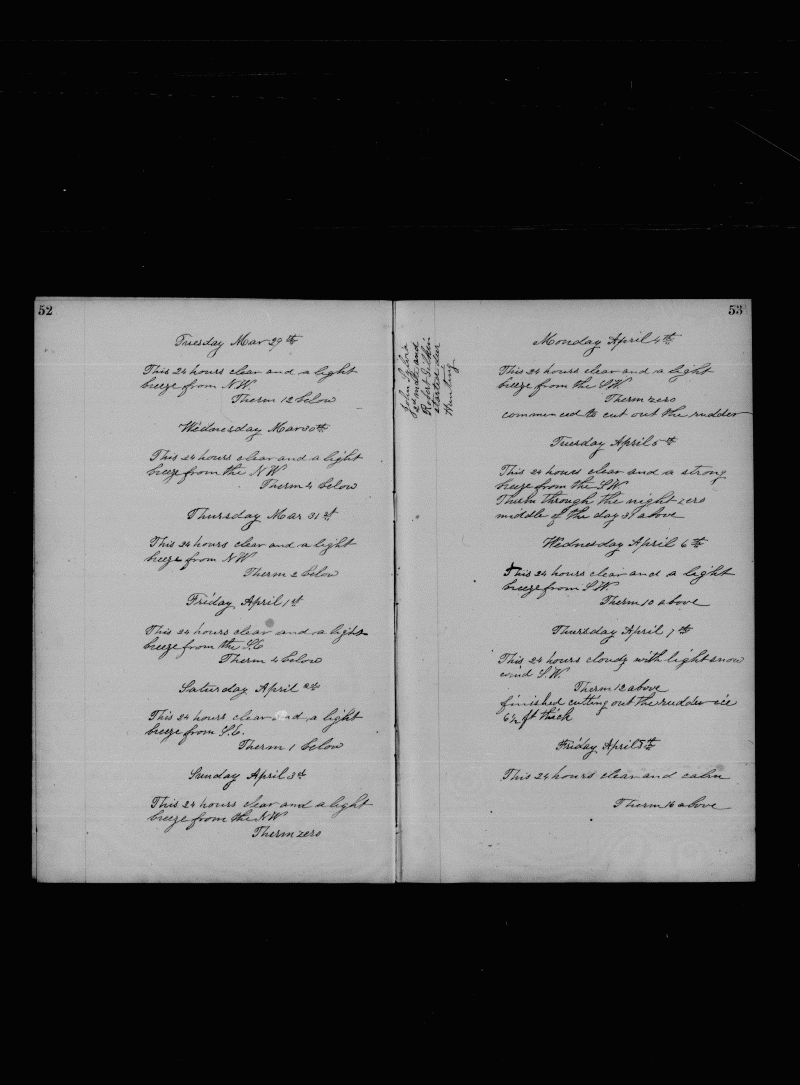 52
Tuesday Mar 29th
This 24 hours clear and a light
breeze from N.W.
Therm 12 below
Wednesday Mar 30th
This 24 hours clear and a light
breeze from the N.W
Therm 4 below
Thursday Mar 31st
This 24 hours clear and a light
breeze from N.W
Therm 2 below
Friday April 1st
This 24 hours clear and a light
breeze from the S.E
Therm 4 below
Saturday April 2d
This 24 hours clear and a light
breeze from S.E.
Therm 1 below
Sunday April 3d
This 24 hours clear and a light
breeze from the N.W
Therm zero
53
John
2d mate and
Robert
started deer
Hunting
Monday April 4th
This 24 hours clear and a light
breeze from the S.W.
Therm zero
commenced to cut out the rudder
Tuesday April 5th
This 24 hours clear and a strong
breeze from the S.W
Therm through the night zero
middle of the day 31 above
Wednesday April 6th
This 24 hours clear and a light
breeze from S.W
Therm 10 above
Thursday April 7th
This 24 hours cloudy with light snow
wind S.W.
Therm 12 above
finished cutting out the rudder ice
6½ ft thick
Friday April 8th
This 24 hours clear and calm
Therm 16 above